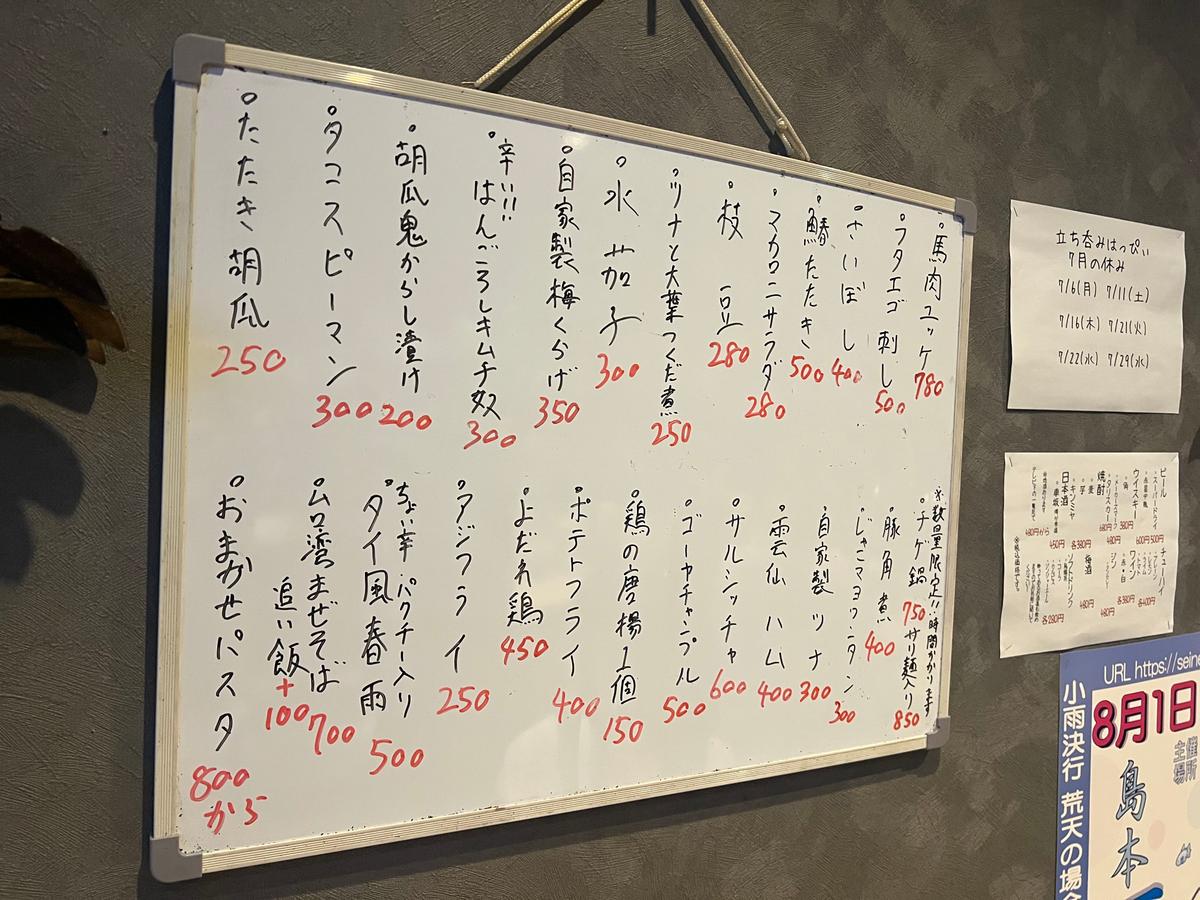 馬肉ユッケ 780
ラタエゴ刺し 500
さいぼし 400
鯵たたき 500
マカロニサラダ 280
枝豆 280
ツナと大葉つくだ煮 250
水茄子 300
自家製梅くらげ 350
辛い!!!
はんごろしキムチ奴 300
胡瓜鬼からし漬け 200
タコスピーマン 300
たたき胡瓜 250
※数量限定!!時間かかります
チゲ鍋 750 サリ麺入り 850
豚角煮 400
じゃこマヨワンタン 300
自家製ツナ 300
雲仙ハム 400
サルシッチャ 600
ゴーヤチャンプル 500
鶏の唐揚1個 150
ポテトフライ 400
よだれ鶏 450
アジフライ 250
ちょい辛 パクチー入り
タイ風春雨 500
ムロ湾まぜそば 700
追い飯 +100
おまかせパスタ 800から
立ち呑みはっぴい
7月の休み
7/6(月) 7/11(土)
7/16(木) 7/21(火)
7/22(水) 7/29(水)
ビール
・スーパードライ 500円
ウイスキー
・角 380円
焼酎
・麦
・芋 各380円
・キンミヤ
日本酒
チューハイ
・プレーン
・ライム
・トマト
各400円
ワン
・赤・白
各380円
・ジン
梅酒
ソフトドリンク
・コーラ
・ジンジャエール
各280円
URL https://seine
8月1日
主催
場所
島本
小雨決行 荒天の場合